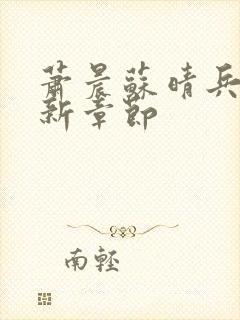 萧晨蘇晴兵
新章節
南輕